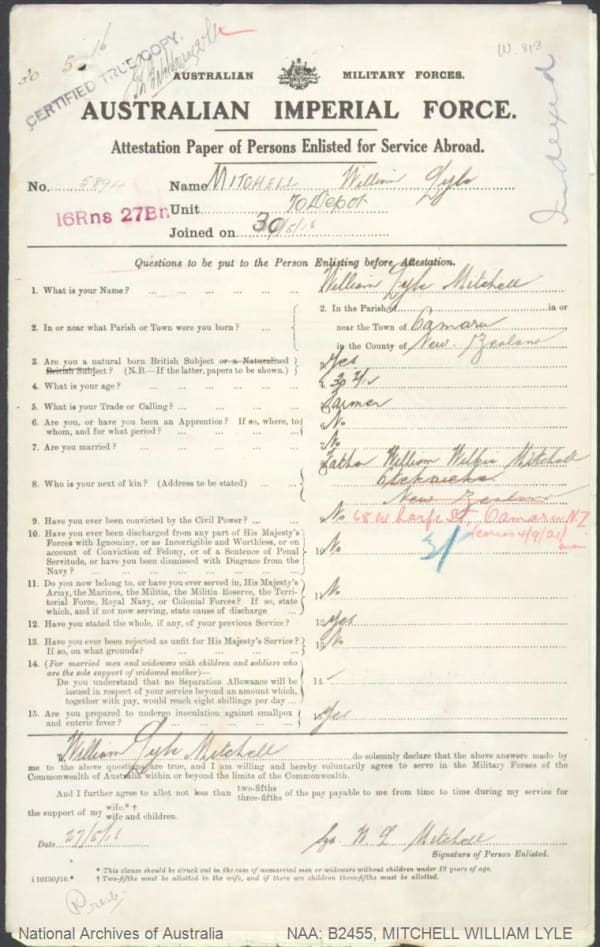 5 16 W. 813
CERTIFIED TRUE COPY.
AUSTRALIAN MILITARY FORCES.
Indexed
AUSTRALIAN IMPERIAL FORCE.
Attestation Paper of Persons Enlisted for Service Abroad.
No. 5894 Name MITCHELL William Lyle
16Rns 27Bn Unit To Depot
Joined on 30/5/16
Questions to be put to the Person Enlisting before Attestation.
1. What is your Name? ... William Lyle Mitchell
2. In or near what Parish or Town were you born? ... 2. In the Parish of in or
near the Town of Oamaru
in the County of New Zealand
3. Are you a natural born British Subject or a Naturalised
British Subject? (N.B.—If the latter, papers to be shown.) Yes
4. What is your age? ... 30
5. What is your Trade or Calling? ... Farmer
6. Are you, or have you been an Apprentice? If so, where, to
whom, and for what period? ... No
7. Are you married? ... No
8. Who is your next of kin? (Address to be stated) ... Father William Mitchell
New Zealand
68 Wharfe St, Oamaru N.Z.
9. Have you ever been convicted by the Civil Power? ... No
10. Have you ever been discharged from any part of His Majesty's
Forces with Ignominy, or as Incorrigible and Worthless, or on
account of Conviction of Felony, or of a Sentence of Penal
Servitude, or have you been dismissed with Disgrace from the
Navy? ... 10 No
11. Do you now belong to, or have you ever served in, His Majesty's
Army, the Marines, the Militia, the Militia Reserve, the Terri-
torial Force, Royal Navy, or Colonial Forces? If so, state
which, and if not now serving, state cause of discharge ... 11 No
12. Have you stated the whole, if any, of your previous Service? 12 Yes
13. Have you ever been rejected as unfit for His Majesty's Service?
If so, on what grounds? ... 13 No
14. (For married men and widowers with children and soldiers who
are the sole support of widowed mother)—
Do you understand that no Separation Allowance will be
issued in respect of your service beyond an amount which,
together with pay, would reach eight shillings per day ... 14 -
15. Are you prepared to undergo inoculation against smallpox
and enteric fever? ... Yes
William Lyle Mitchell do solemnly declare that the above answers made by
me to the above questions are true, and I am willing and hereby voluntarily agree to serve in the Military Forces of the
Commonwealth of Australia within or beyond the limits of the Commonwealth.
And I further agree to allot not less than two-fifths
three-fifths of the pay payable to me from time to time during my service for
the support of my wife.*†
wife and children.
Date 27/5/16 Sgd W L Mitchell
Signature of Person Enlisted.
* This clause should be struck out in the case of unmarried men or widowers without children under 18 years of age.
† Two-fifths must be allotted to the wife, and if there are children three-fifths must be allotted.
National Archives of Australia NAA: B2455, MITCHELL WILLIAM LYLE